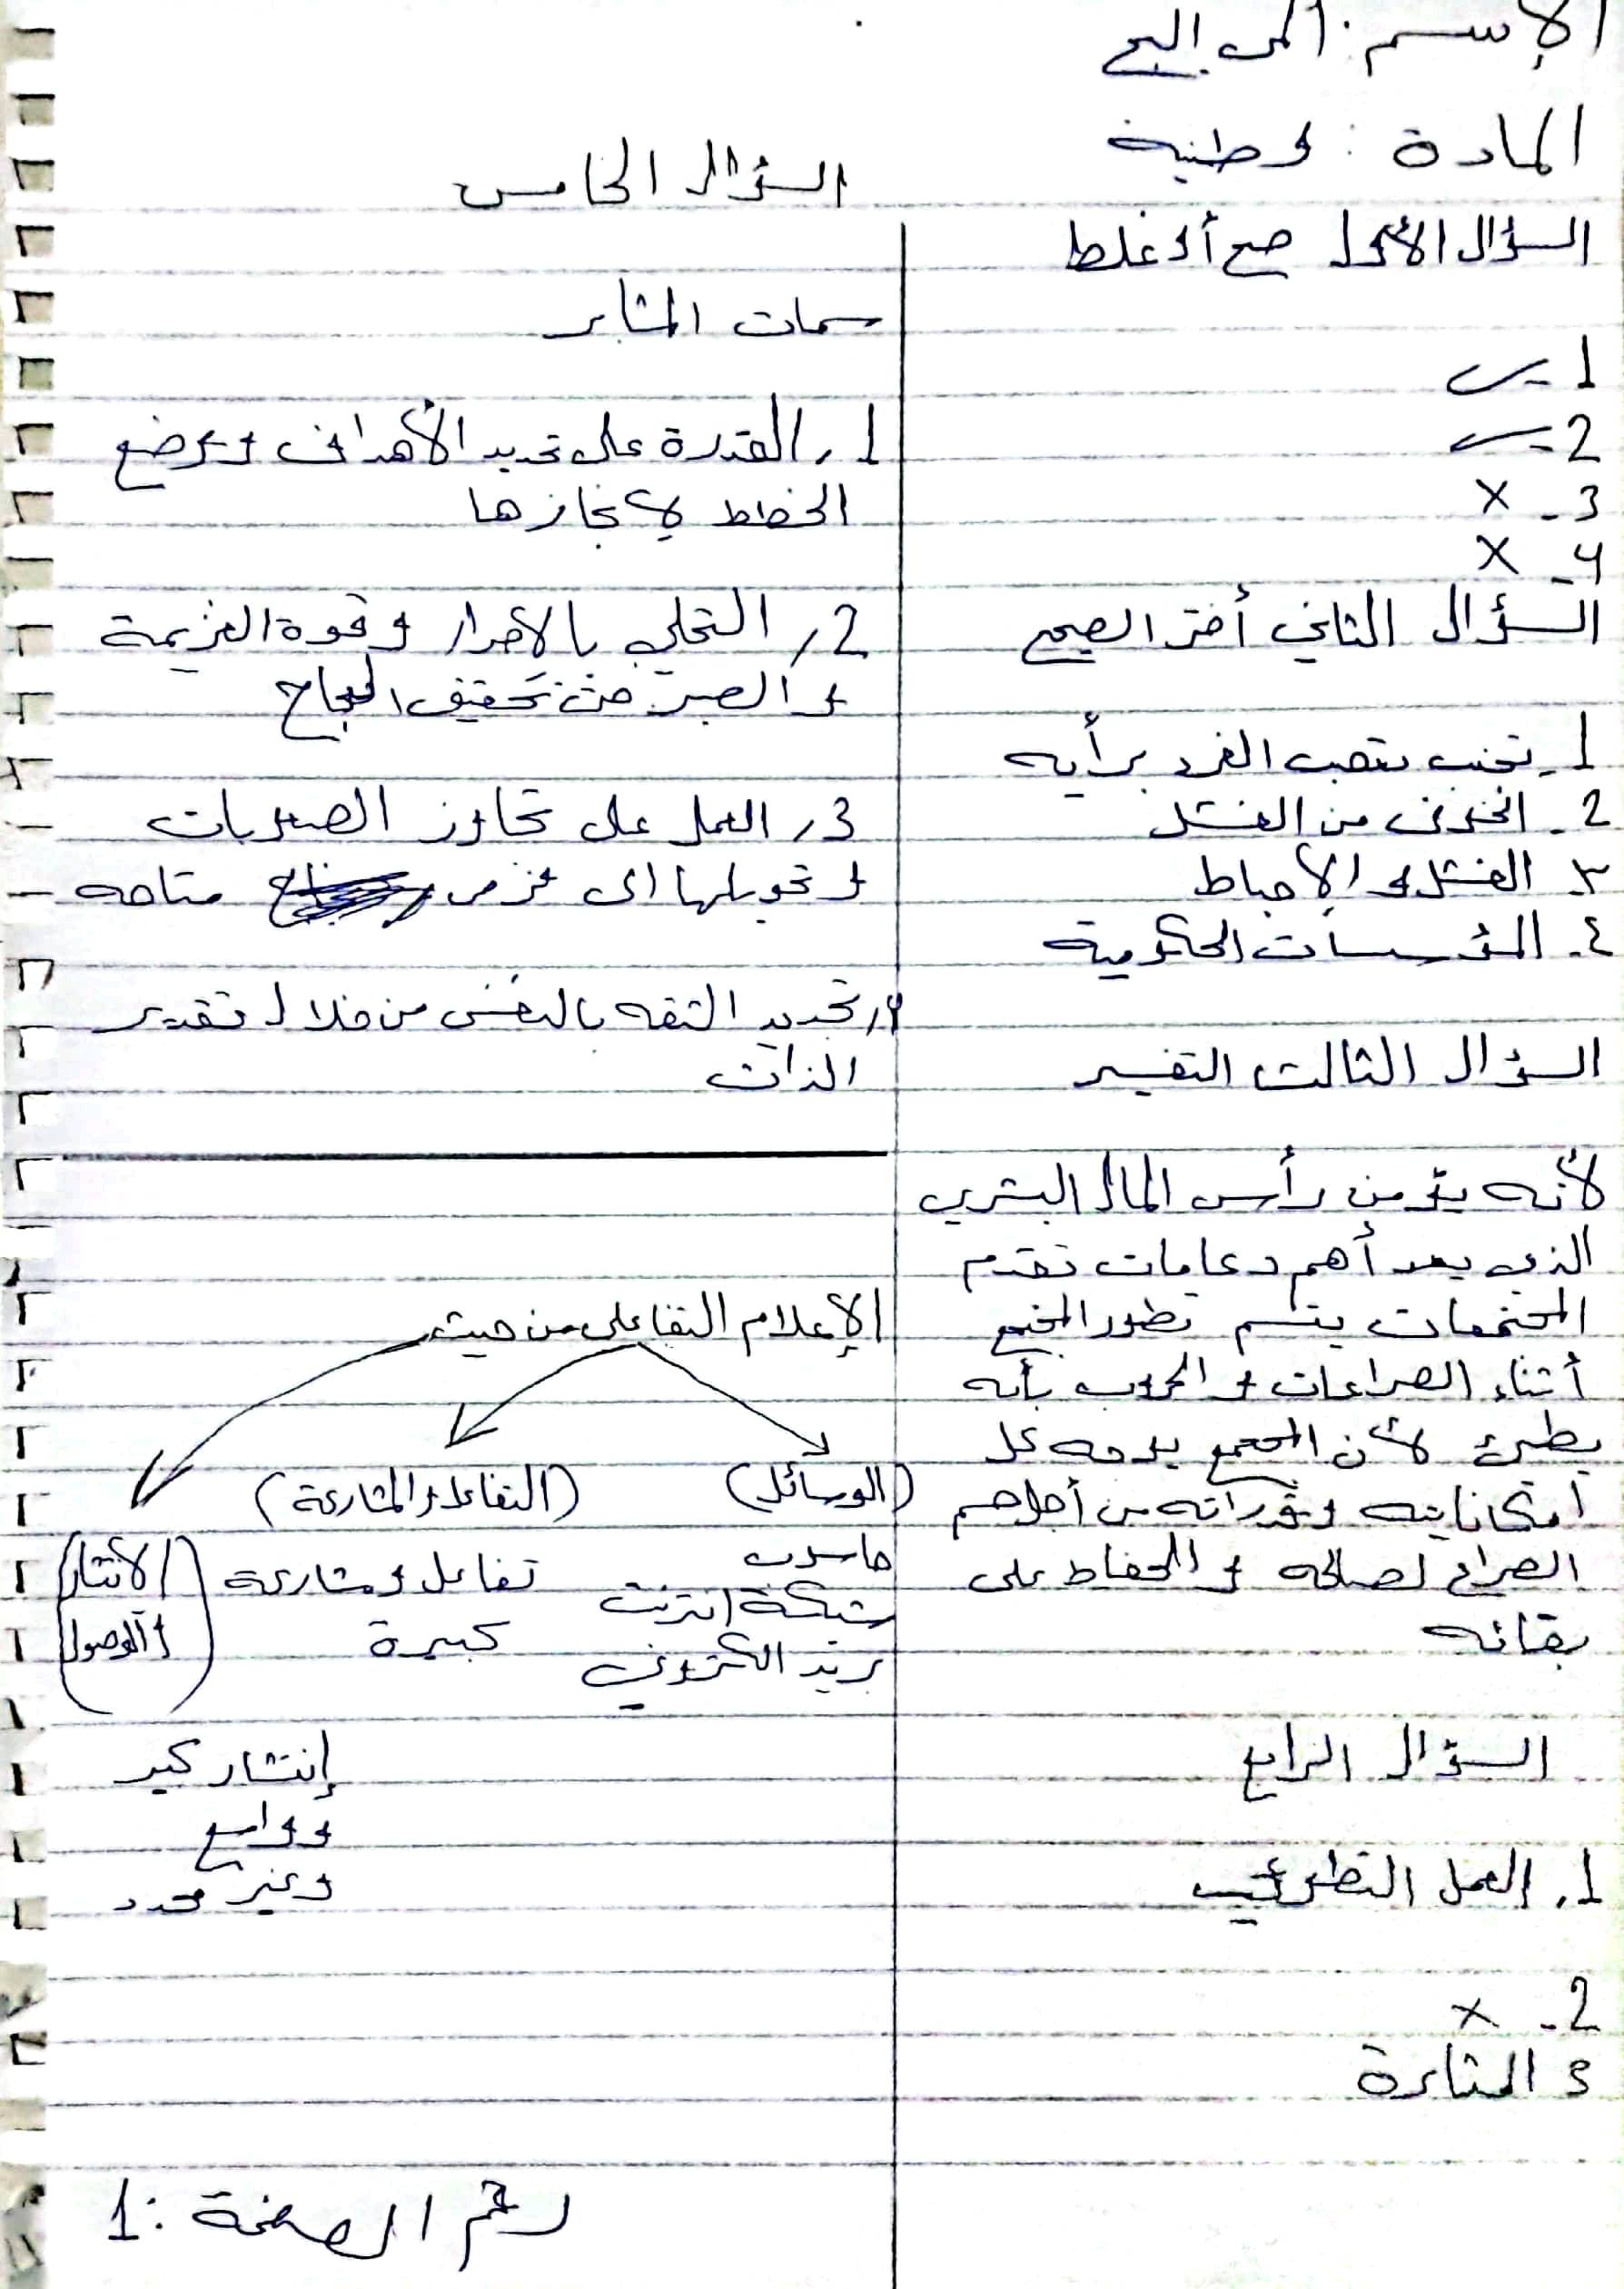 الإسم:
المادة : وطنية
السؤال الأول صح أو غلط
1 - ✓
2 - ✓
3 - X
4 - X
السؤال الثاني أختر الصحيح
1- تجنب تعصب الفرد برأيه
2- الخوف من الفشل
٣- الفشل و الإحباط
٤- المؤسسات الحكومية
السؤال الثالث التفسير
لأنه يؤمن رأس المال البشري
الذي يعد أهم دعامات تقدم
المجتمعات يتسم تطور المجتمع
أثناء الصراعات و الحروب بأنه
بطيء لأن المجتمع يوجه كل
امكاناياته وقدراته من أجل حسم
الصراع لصالحه و الحفاظ على
بقائه
السؤال الرابع
1. العمل التطوعي
2 - X
3 المثابرة
السؤال الخامس
سمات المثابر
1, القدرة على تحديد الأهداف و وضع
الخطط لإنجازها
2, التحلي بالاصرار و قوة العزيمة
و الصبر تحقيق النجاح
3, العمل على تجاوز الصعوبات
و تحويلها الى فرص متاحه
4, الثقه بالنفس من خلال تقدير
الذات
الإعلام التفاعلي من حيث
(الوسائل) (التفاعل و المشاركة) (الأنتشار و الوصول)
حاسوب
شبكة انترنت
بريد الكتروني
تفاعل و مشاركة
كبيرة
إنتشار كبير
و واسع
وغير محدد
رقم الصفحة :1